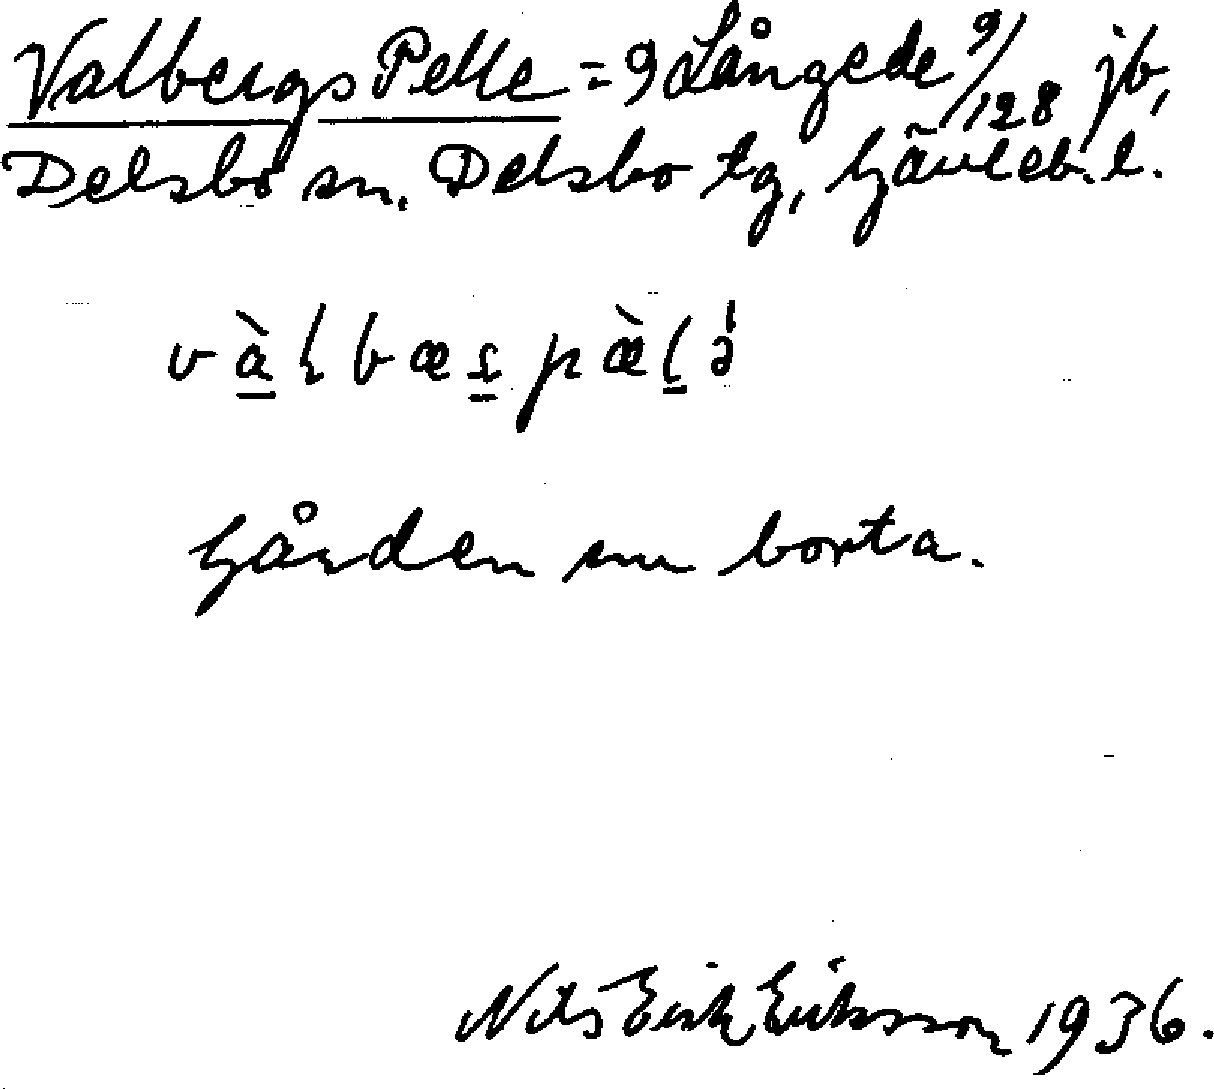 Valbergs Pelle = 9 Långede 9/128 jb,
Delsbo sn, Delsbo tg, Gävleb. l.
Gården nu borta.
Nils Erik Eriksson 1936.